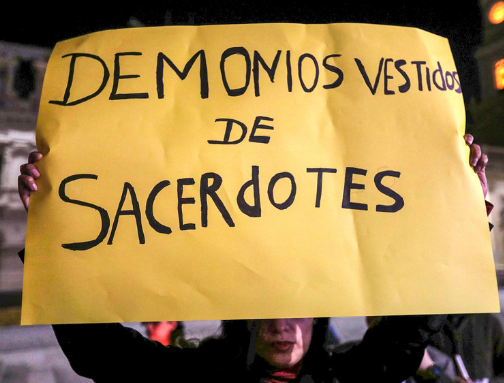 DEMONIOS VESTidos
DE
SACERdOTES